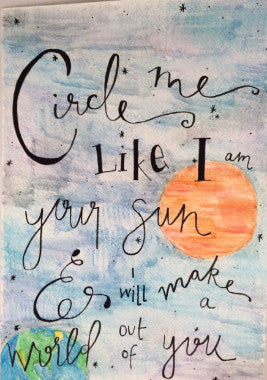 Circle me
Like I am
your sun
& I will make a
world out of you